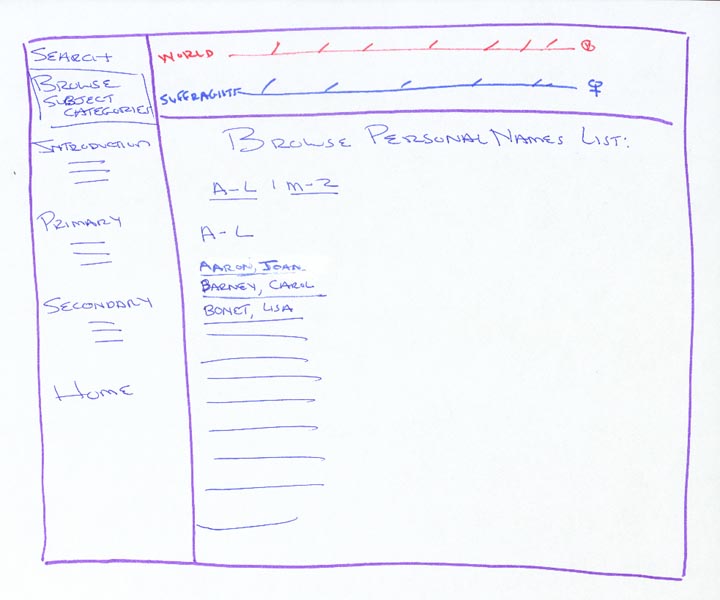 SEARCH
BROWSE
SUBJECT
CATEGORIES
INTRODUCTION
PRIMARY
SECONDARY
HOME
WORLD
SUFFRAGISTE
BROWSE PERSONAL NAMES LIST:
A-L | M-Z
A-L
AARON, JOAN
BARNEY, CAROL
BONET, LISA